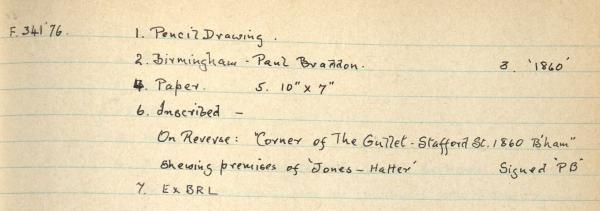 F. 341'76. 1. Pencil Drawing.
2. Birmingham - Paul Braddon. 3. '1860'
4. Paper. 5. 10" x 7"
6. Inscribed -
On Reverse: "Corner of The Gullet - Stafford St. 1860 B'ham"
shewing premises of 'Jones - Hatter' Signed 'PB'
7. Ex BRL